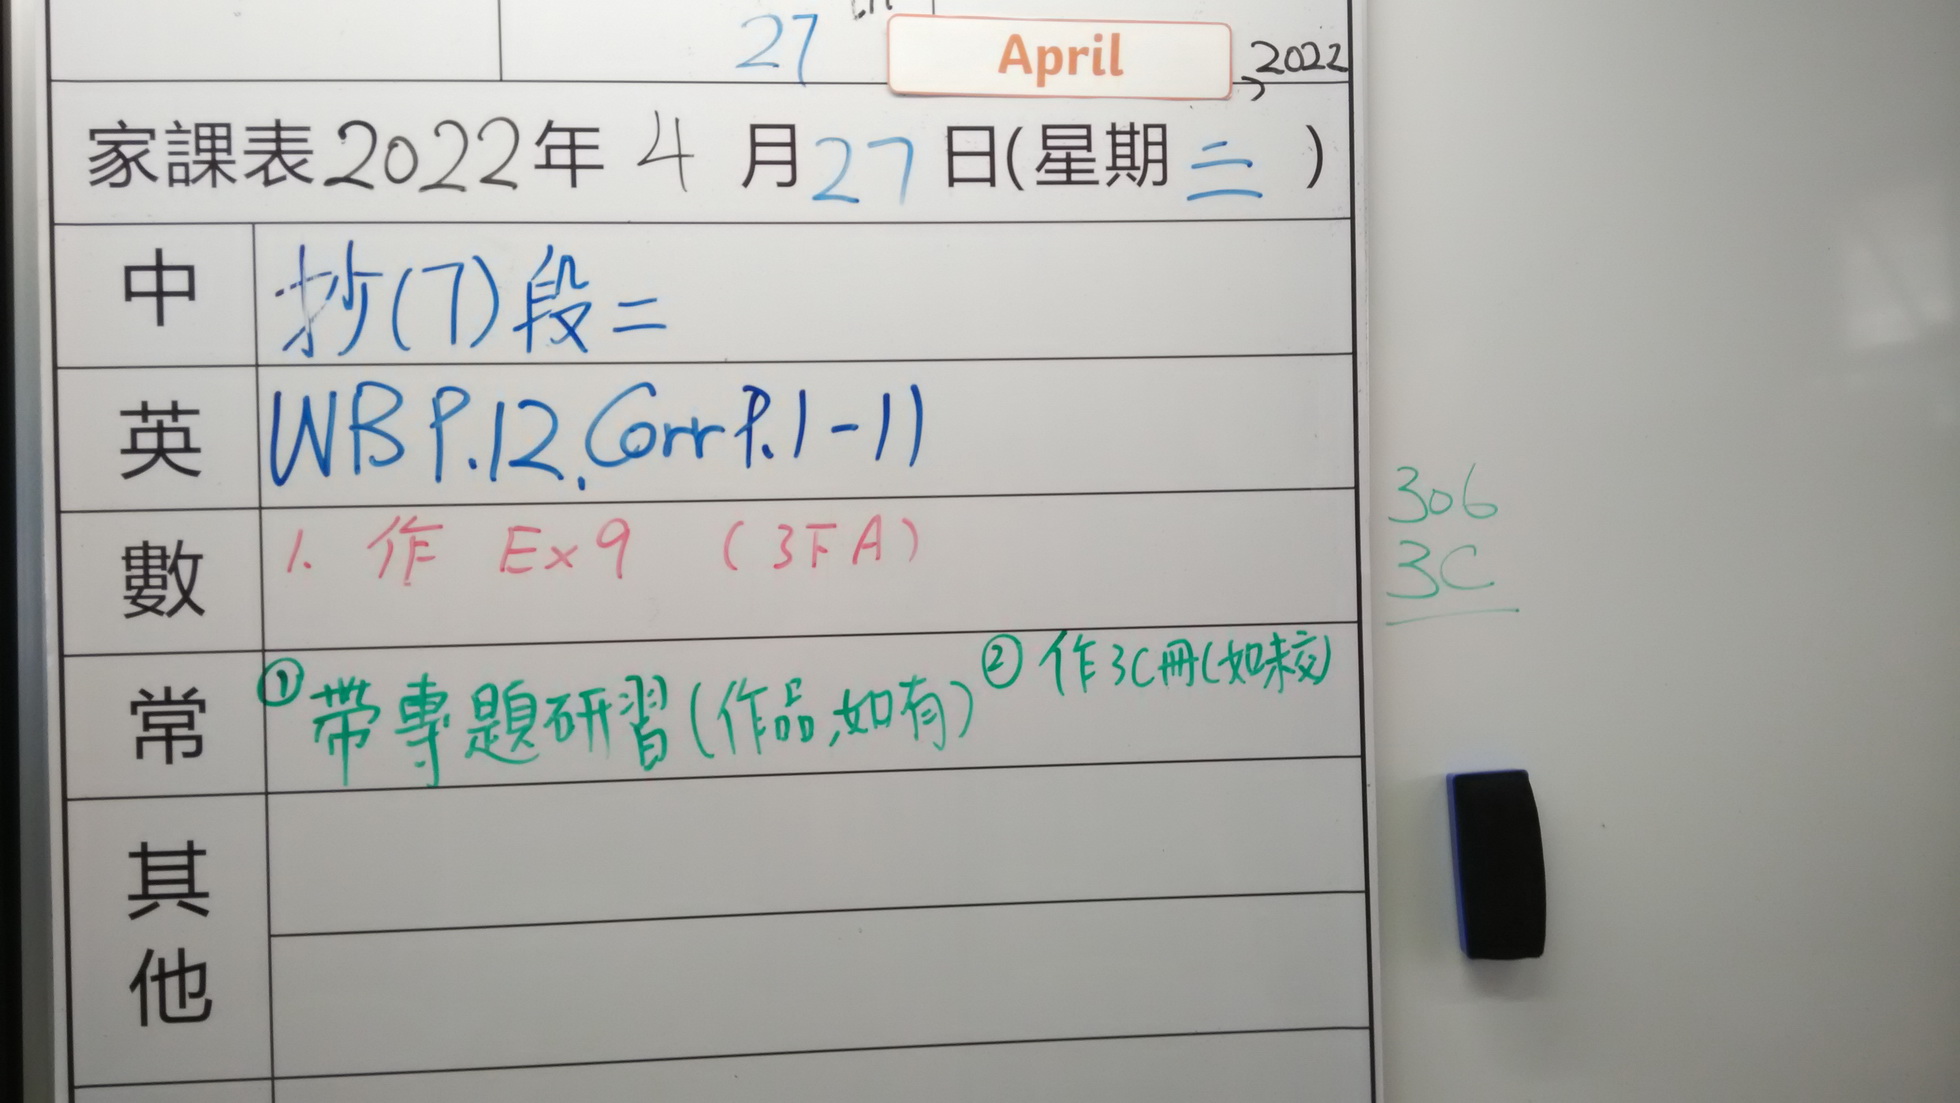 27th April, 2022
家課表2022年4月27日(星期三)
中 抄(7)段二
英 WB P.12, Corr P.1-11
數 1. 作 Ex9 (3下A)
常 ①帶專題研習(作品,如有) ②作3C冊(如未交)
其他
306
3C